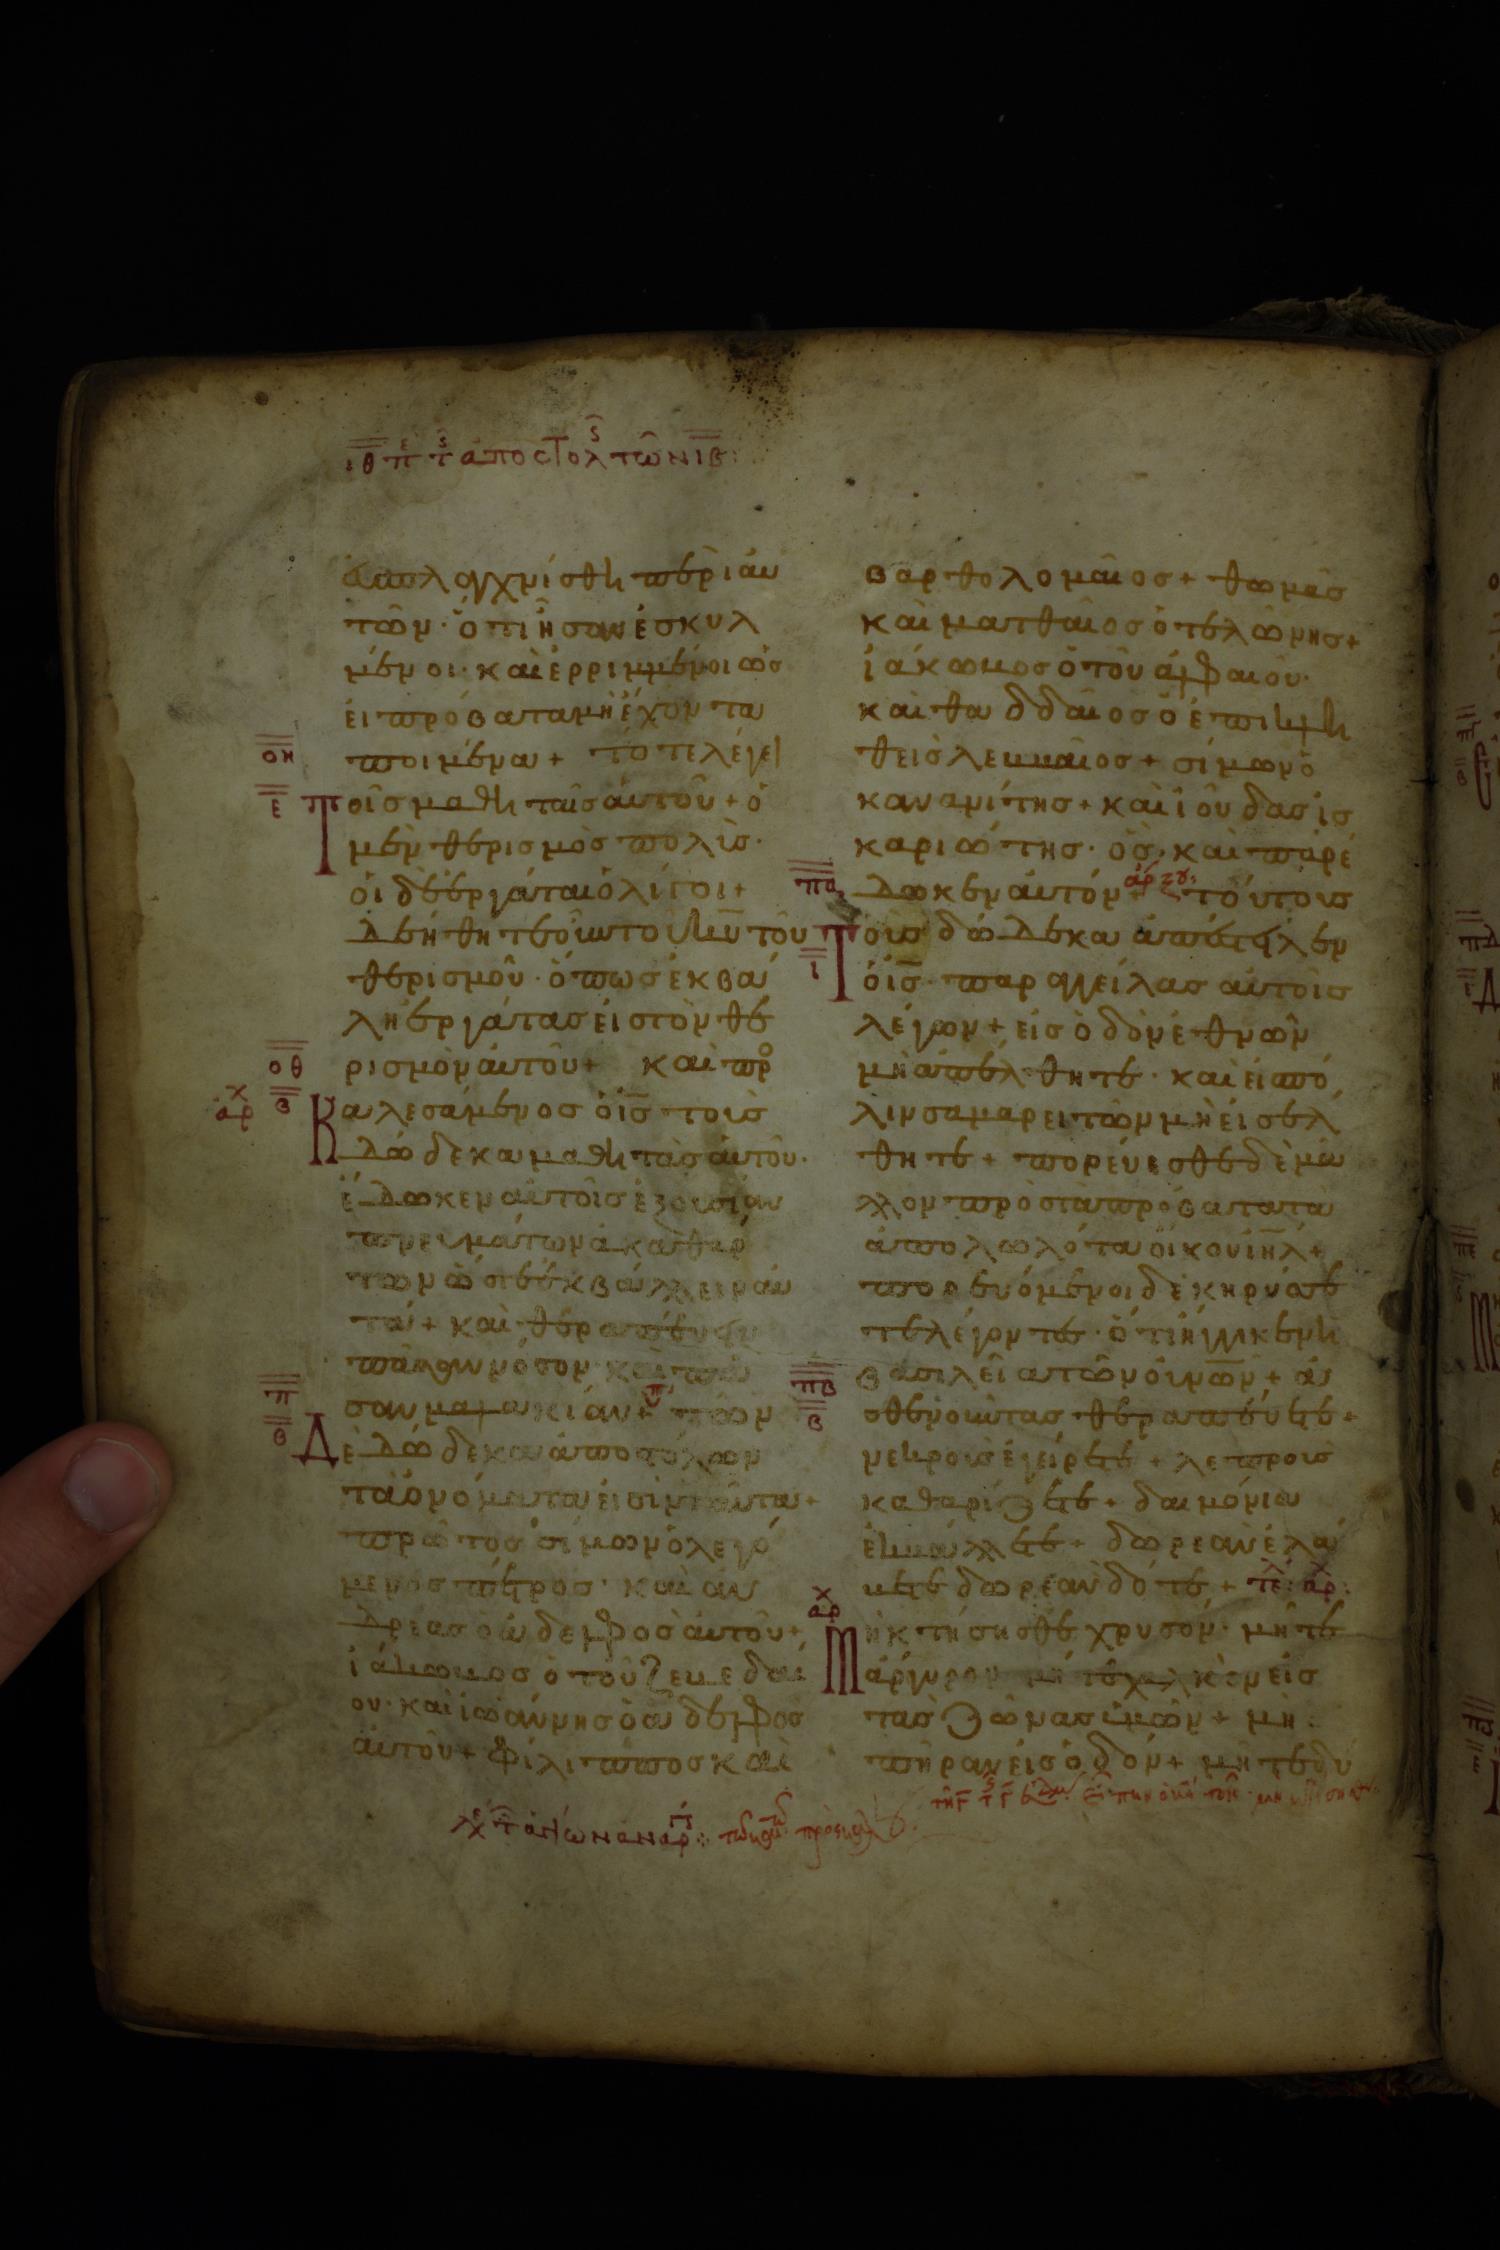 ιθ πε τς ἀποστολς τῶν ιβ:
ἐσπλαγχνίσθη περὶ ἀυ
τῶν· ὅτι ἦσαν ἐσκυλ
μένοι· καὶ ἐρριμμένοι ὡσ
εὶ πρόβατα μὴ ἔχοντα
ποιμένα + τότε λέγει
οη
ε
Τοῖσ μαθηταῖσ ἀυτοῦ + ὁ
μὲν θερισμὸσ πολὺσ·
ὁι δὲ ἐργάται ὀλίγοι +
δεήθητε ὂυν τοῦ κ̅υ̅ τοῦ
θερισμοῦ· ὅπωσ ἐκβά
λη ἐργάτασ εἰσ τὸν θε
ρισμὸν ἀυτοῦ + καὶ προ
οθ
β
ἀρχ
Καλεσάμενοσ ὁ ι̅σ̅ τοὺσ
δώδεκα μαθητὰσ ἀυτοῦ·
ἔδωκεν ἀυτοῖσ ἐξουσίαν
πνευμάτων ἀκαθάρ
των ὥστε ἐκβάλλειν ἀυ
τά + καὶ θεραπεύειν
πᾶσαν νόσον καὶ πᾶ
σαν μαλακίαν + τῶν
π
β
Δὲ δώδεκα ἀποστόλων
τὰ ὀνόματα εἰσὶν ταῦτα +
πρῶτοσ σίμων ὁ λεγό
μενοσ πέτροσ· καὶ ἀν
δρέασ ὁ ἀδελφοσ ἀυτοῦ +
ἰάκωβοσ ὁ τοῦ ζεβεδαί
ου· καὶ ἰωάννησ ὁ ἀδελφοσ
ἀυτοῦ + φίλιπποσ καὶ
βαρθολομαῖοσ + θωμᾶσ
καὶ ματθαῖοσ ὁ τελώνησ +
ἰάκωβοσ ὁ τοῦ ἀλφαιου·
καὶ θαδδαῖοσ ὁ ἐπικλη
θεὶσ λεββαῖοσ + σίμων ὁ
κανανίτησ + καὶ ἰούδασ ἰσ
καριώτησ· ὁσ καὶ παρέ
δωκεν ἀυτόν + τούτουσ
πα
ι
Τοὺσ δώδεκα ἀπέστειλεν
ὁ ι̅σ̅· παραγγείλασ ἀυτοῖσ
λέγων + εἰσ ὁδὸν ἐθνῶν
μὴ ἀπέλθητε· καὶ εἰσ πό
λιν σαμαρειτῶν μὴ εἰσέλ
θητε + πορέυεσθε δὲ μᾶ
λλον πρὸσ τὰ πρόβατα τὰ
ἀπολωλότα ὄικου ι̅η̅λ̅ +
πορευόμενοι δὲ κηρύσσε
τε λέγοντεσ· ὅτι ἤγγικεν ἡ
βασιλεία τῶν ὀυνῶν + ἀ
πβ
β
σθενοῦντασ θεραπέυετε +
νεκροὺσ ἐγείρετε + λεπροὺσ
καθαρίζετε + δαιμόνια
ἐκβάλλετε + δωρεὰν ἐλά
βετε δωρεὰν δότε + τελ: ἀρχ:
ἀρχ
Μὴ κτήσησθε χρυσόν· μήτε
ἄργυρον μήτε χαλκὸν εἰσ
τὰσ ζώνασ ὑμῶν + μὴ
πήραν εἰσ ὁδόν + μήτε δυ